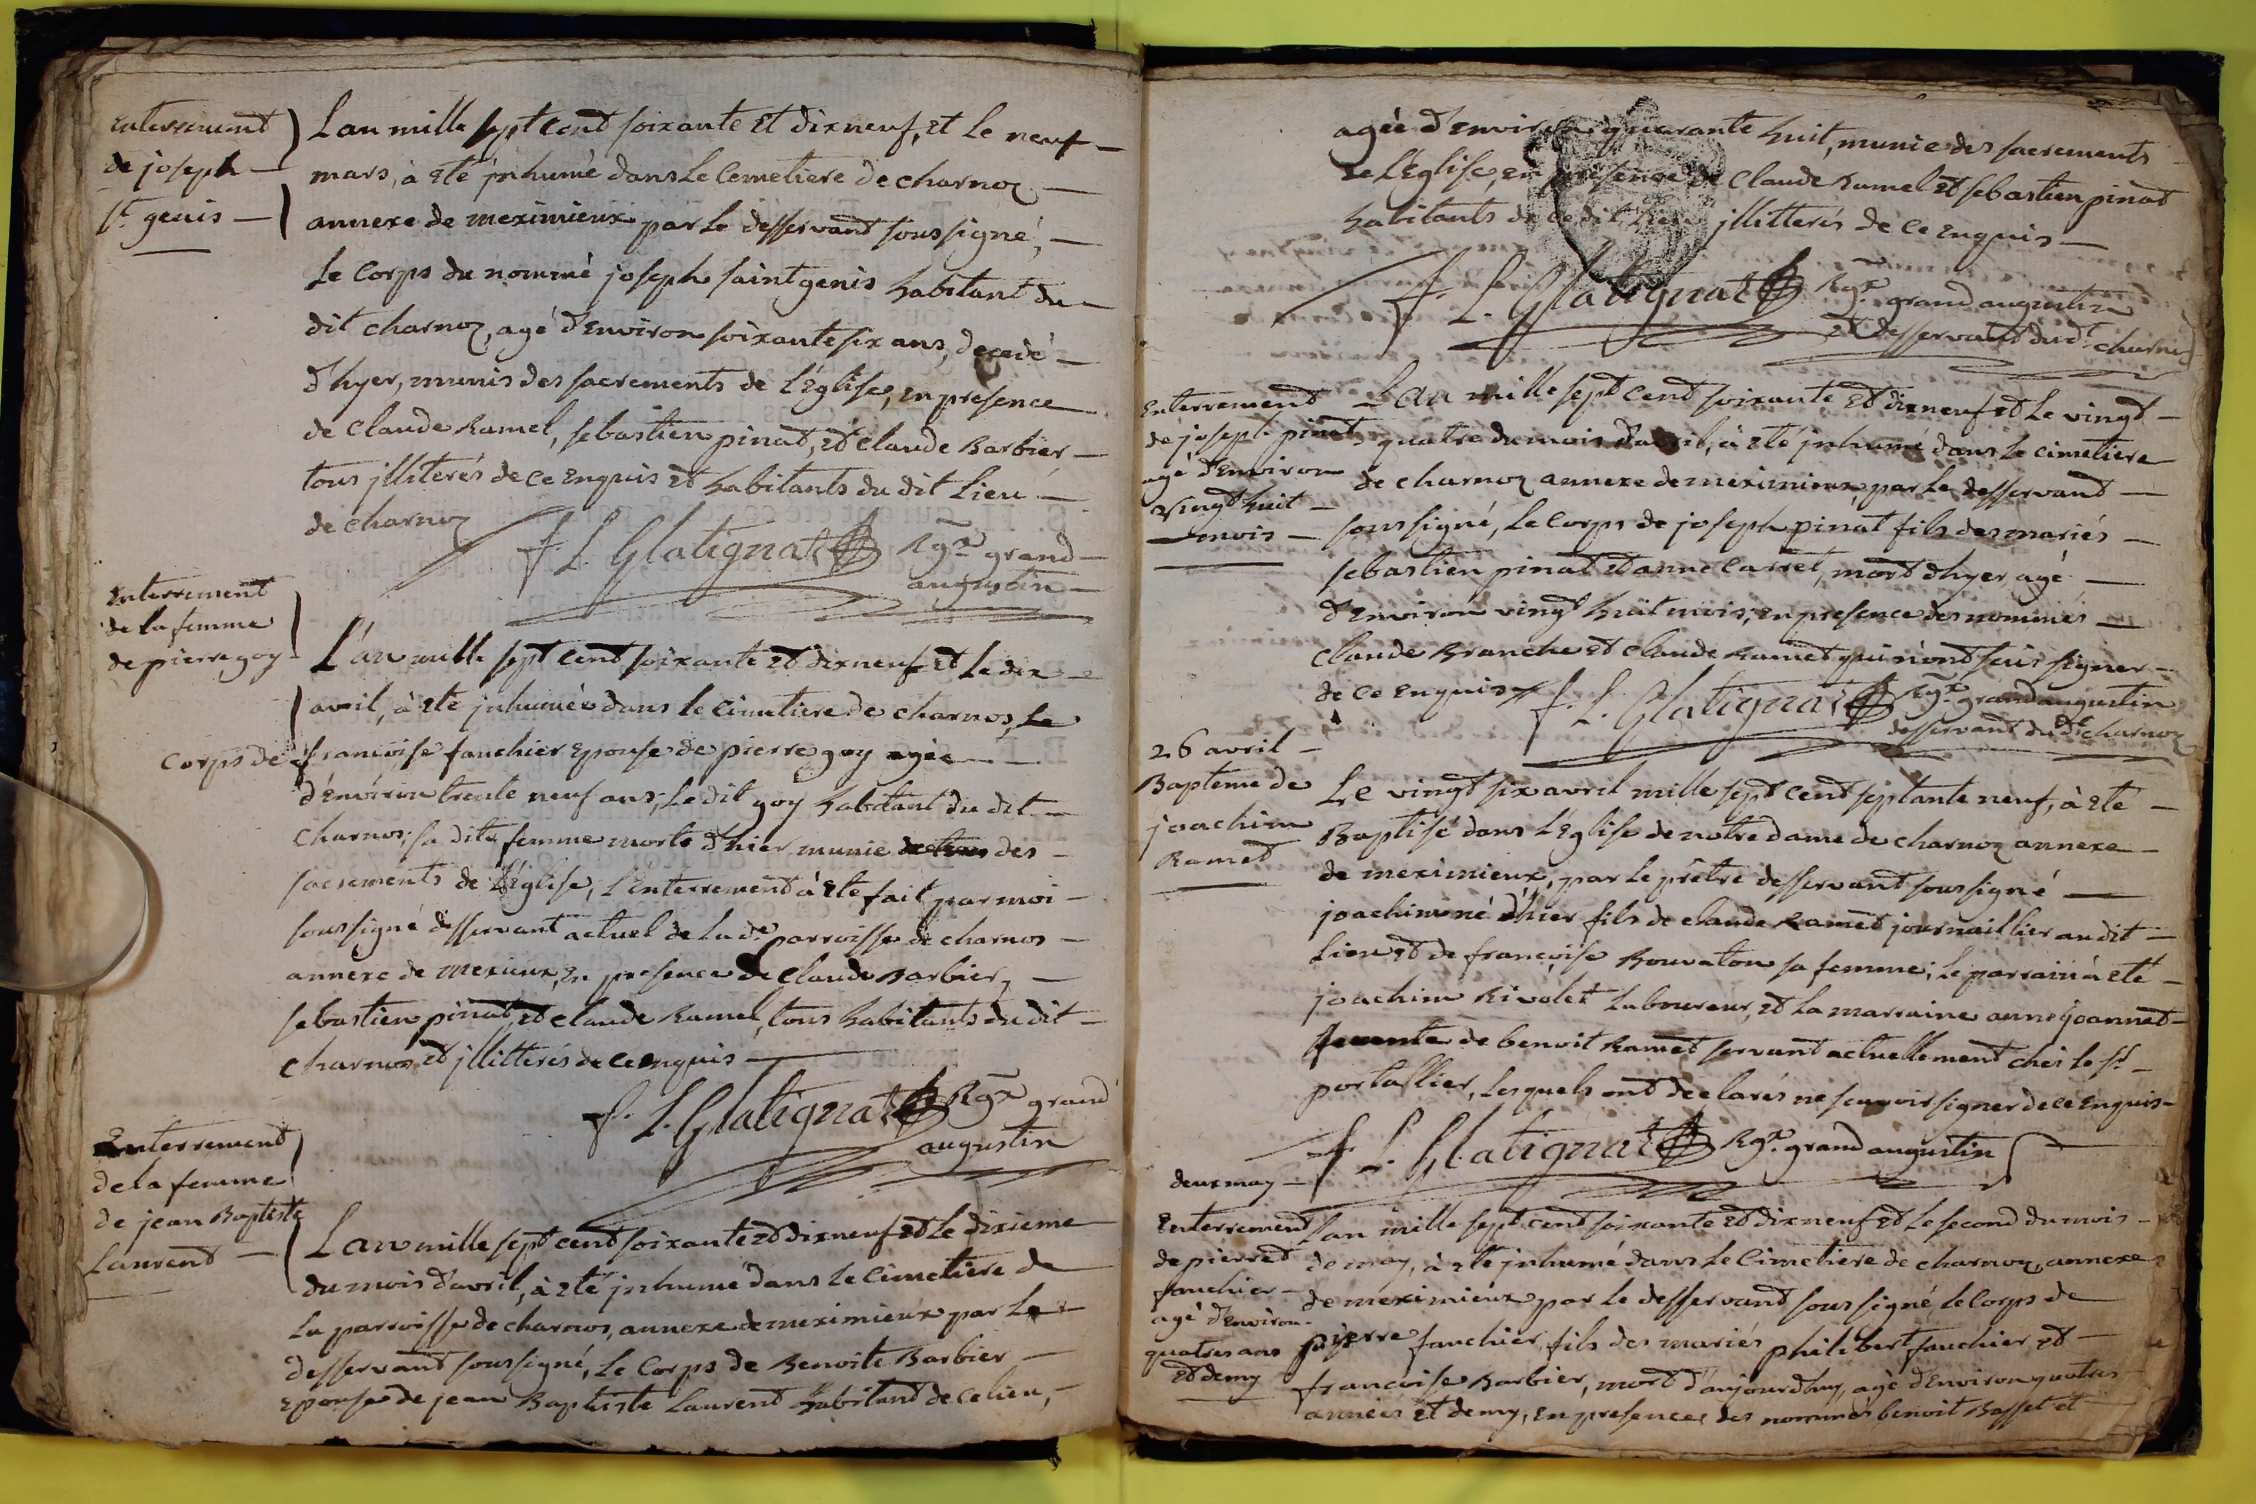 Enterrement
de joseph
st genis
L'an mille sept cent soixante et dixneuf, et le neuf
mars, à eté jnhumé dans le Cemetiere de charnoz
annexe de meximieux par le desservant soussigné,
le Corps du nommé joseph saint genis habitant du
dit charnoz, agé d'Environ soixante six ans, decedé
d'hyer, munis des sacrements de l'Eglise, en presence
de Claude Ramel, sebastien pinat, et claude Barbier
tous jlliterés de ce enquis et habitants du dit lieu
de charnoz
f. L. Glatignat Rgx grand
augustin
Enterrement
de la femme
de pierre goy
L'an mille sept cent soixante et dixneuf et le dix
avril, à eté jnhumée dans le cimetiere de charnos, le
corps de françoise fauchier epouse de pierre goy agée
d'Environ trente neuf ans; le dit goy habitant du dit
charnos; sa dite femme morte d'hier munie des
sacrements de l'Eglise, l'Enterrement à eté fait par moi
soussigné desservant actuel de la de parroisse de charnos
annexe de mexieux, en presence de Claude Barbier,
sebastien pinat, et claude Ramel, tous habitants du dit
charnos et jllitterés de ce enquis
f. L. Glatignat Rgx grand
augustin
Enterrement
de la femme
de jean Baptiste
Laurent
L'an mille sept cent soixante et dixneuf et le dixieme
du mois d'avril, à eté jnhumé dans le Cimetiere de
la parroisse de charnos, annexe de meximieux par le
desservant soussigné, le Corps de Benoite Barbier
epouse de jean Baptiste Laurent habitant de ce lieu,
agée d'Environ quarante huit, munie des sacrements
de l'Eglise, en presence de Claude Ramel et sebastien pinat
habitants de ce dit lieu jllitterés de ce enquis
f. L. Glatignat Rgx grand augustin
et desservant du dt charnoz
Enterrement
de joseph pinat
agé d'Environ
vingt huit
mois
L'an mille sept cent soixante et dixneuf et le vingt
quatre du mois d'avril, à eté jnhumé dans le cimetiere
de charnoz annexe de meximieux, par le desservant
soussigné, le Corps de joseph pinat fils des mariés
sebastien pinat et anne Carret, mort d'hyer agé
d'Environ vingt huit mois; en presence des nommés
Claude Branche et Claude Ramet qui n'ont seus signer
de ce enquis
f. L. Glatignat Rgx grand augustin
desservant du dt charnoz
26 avril
Bapteme de
joachim
Ramet
Le vingt six avril mille sept cent septante neuf, à eté
Baptisé dans l'Eglise de notre dame de charnoz annexe
de meximieux, par le prêtre desservant soussigné
joachim né d'hier fils de claude Ramet journaillier au dit
lieu et de françoise Rouvaton sa femme; le parrain à eté
joachim Rivolet Laboureur, et la marraine anne joannet
de benoit Ramet servant actuellement chés le sr
portallier, lesquels ont declarés ne scavoir signer de ce enquis
f. L. Glatignat Rgx. grand augustin
deux may
Enterrement
de pierre
fauchier
agé d'Environ
quatres ans
et demy
L'an mille sept cent soixante et dixneuf et le second du mois
de may, à eté jnhumé dans le Cimetiere de charnoz, annexe
de meximieux par le desservant soussigné, le Corps de
pierre fauchier, fils des mariés philibert fauchier et
françoise Barbier, mort d'aujourdhuy, agé d'Environ quatres
années et demy, en presence des nommés benoit Basset et